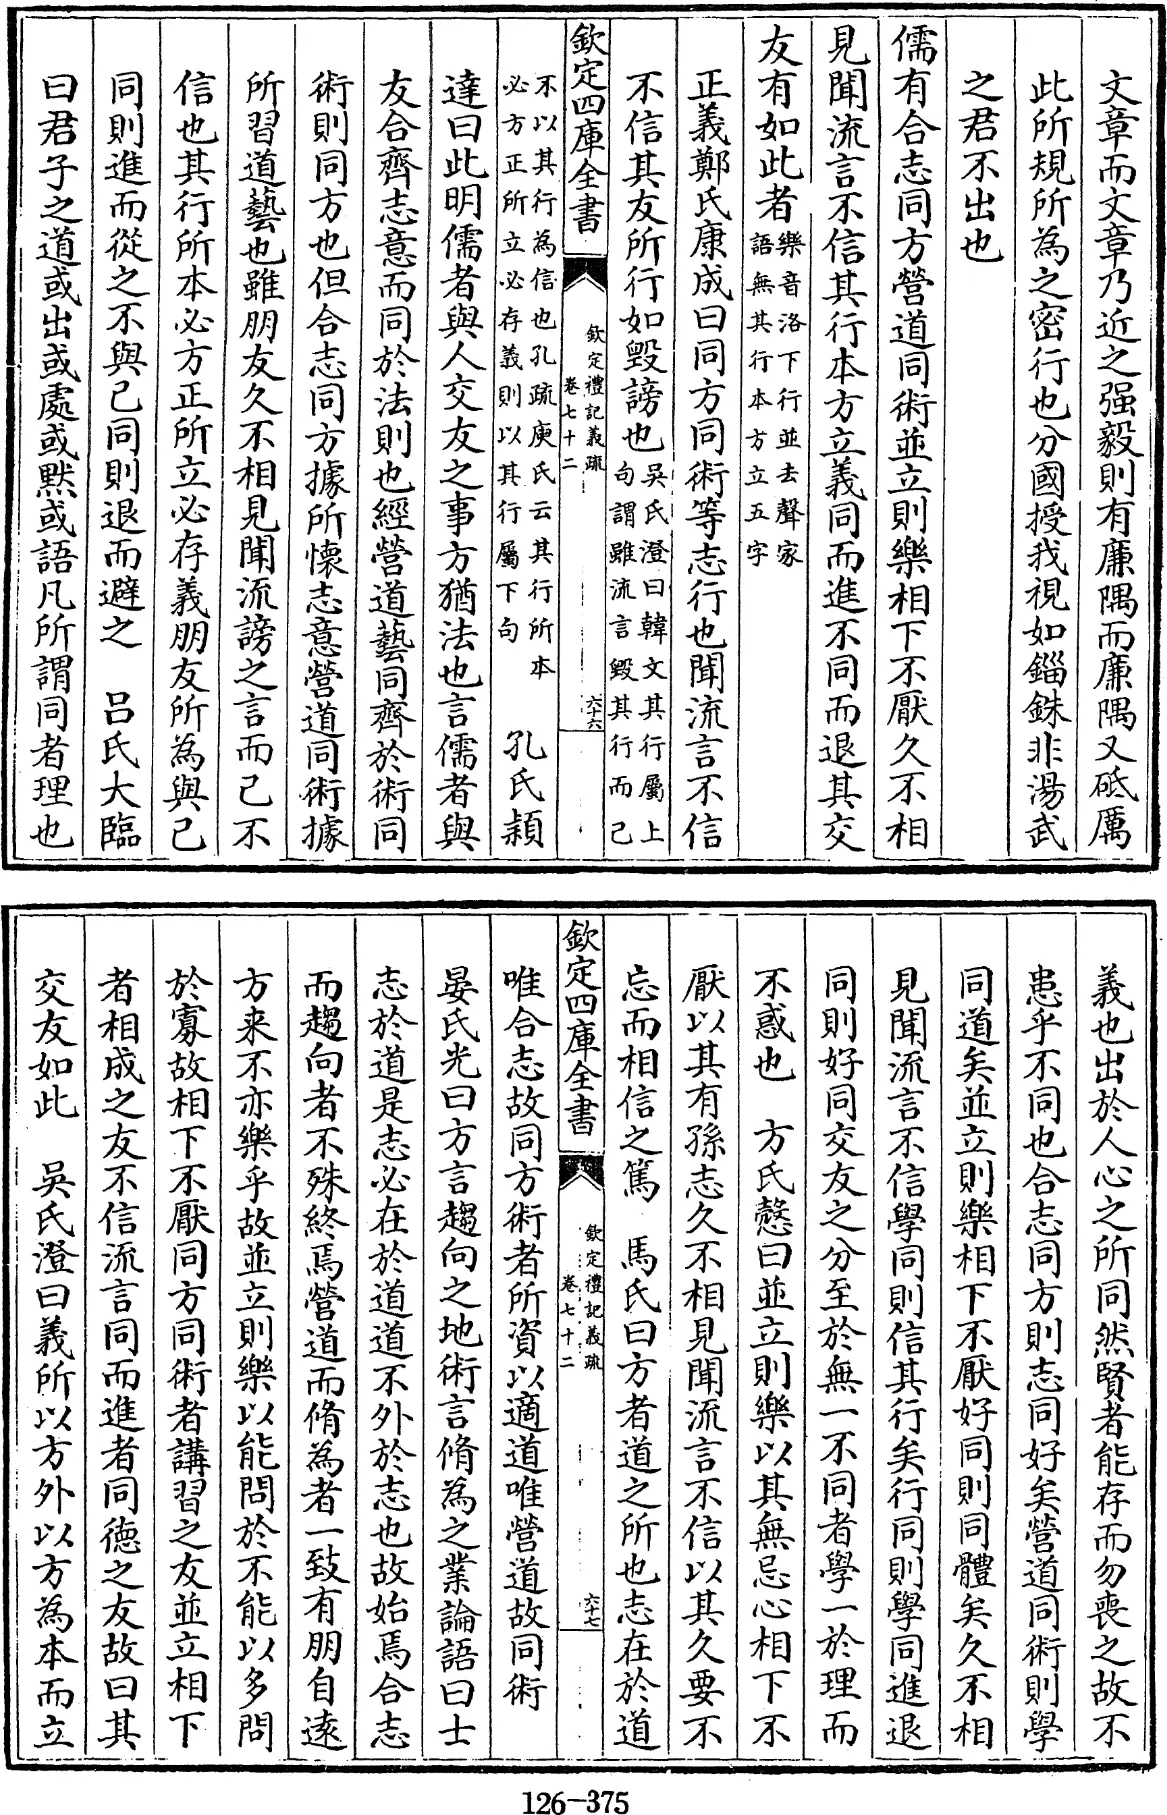 文章而文章乃近之强毅則有廉隅而廉隅又砥厲
此所規所為之密行也分國授我視如錙銖非湯武
之君不出也
儒有合志同方營道同術並立則樂相下不厭久不相
見聞流言不信其行本方立義同而進不同而退其交
友有如此者樂音洛下行並去聲家
語無其行本方立五字
正義鄭氏康成曰同方同術等志行也聞流言不信
不信其友所行如毀謗也吳氏澄曰韓文其行屬上
句謂雖流言毀其行而己
欽定四庫全書
欽定禮記義疏
卷七十二
六十六
不以其行為信也孔疏庾氏云其行所本
必方正所立必存義則以其行屬下句
孔氏穎
達曰此明儒者與人交友之事方猶法也言儒者與
友合齊志意而同於法則也經營道藝同齊於術同
術則同方也但合志同方據所懷志意營道同術據
所習道藝也雖朋友久不相見聞流謗之言而己不
信也其行所本必方正所立必存義朋友所為與己
同則進而從之不與己同則退而避之　呂氏大臨
曰君子之道或出或處或默或語凡所謂同者理也
義也出於人心之所同然賢者能存而勿喪之故不
患乎不同也合志同方則志同好矣營道同術則學
同道矣並立則樂相下不厭好同則同體矣久不相
見聞流言不信學同則信其行矣行同則學同進退
同則好同交友之分至於無一不同者學一於理而
不惑也　方氏慤曰並立則樂以其無忌心相下不
厭以其有孫志久不相見聞流言不信以其久要不
忘而相信之篤　馬氏曰方者道之所也志在於道
欽定四庫全書
欽定禮記義疏
卷七十二
六十七
唯合志故同方術者所資以適道唯營道故同術
晏氏光曰方言趨向之地術言脩為之業論語曰士
志於道是志必在於道道不外於志也故始焉合志
而趨向者不殊終焉營道而脩為者一致有朋自遠
方來不亦樂乎故並立則樂以能問於不能以多問
於寡故相下不厭同方同術者講習之友並立相下
者相成之友不信流言同而進者同德之友故曰其
交友如此　吳氏澄曰義所以方外以方為本而立
126-375